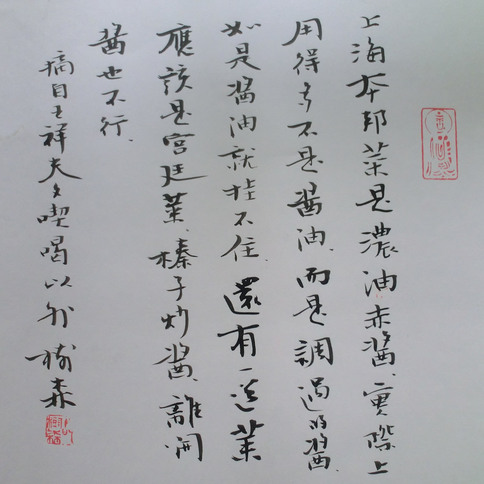 上海本邦菜是濃油赤醬、實際上
用得多不是醬油、而是調過的醬、
如是醬油就掛不住、還有一道菜
應該是宮廷菜、榛子炒醬、離開
醬也不行、
摘自王祥夫文喫喝以外 樹森